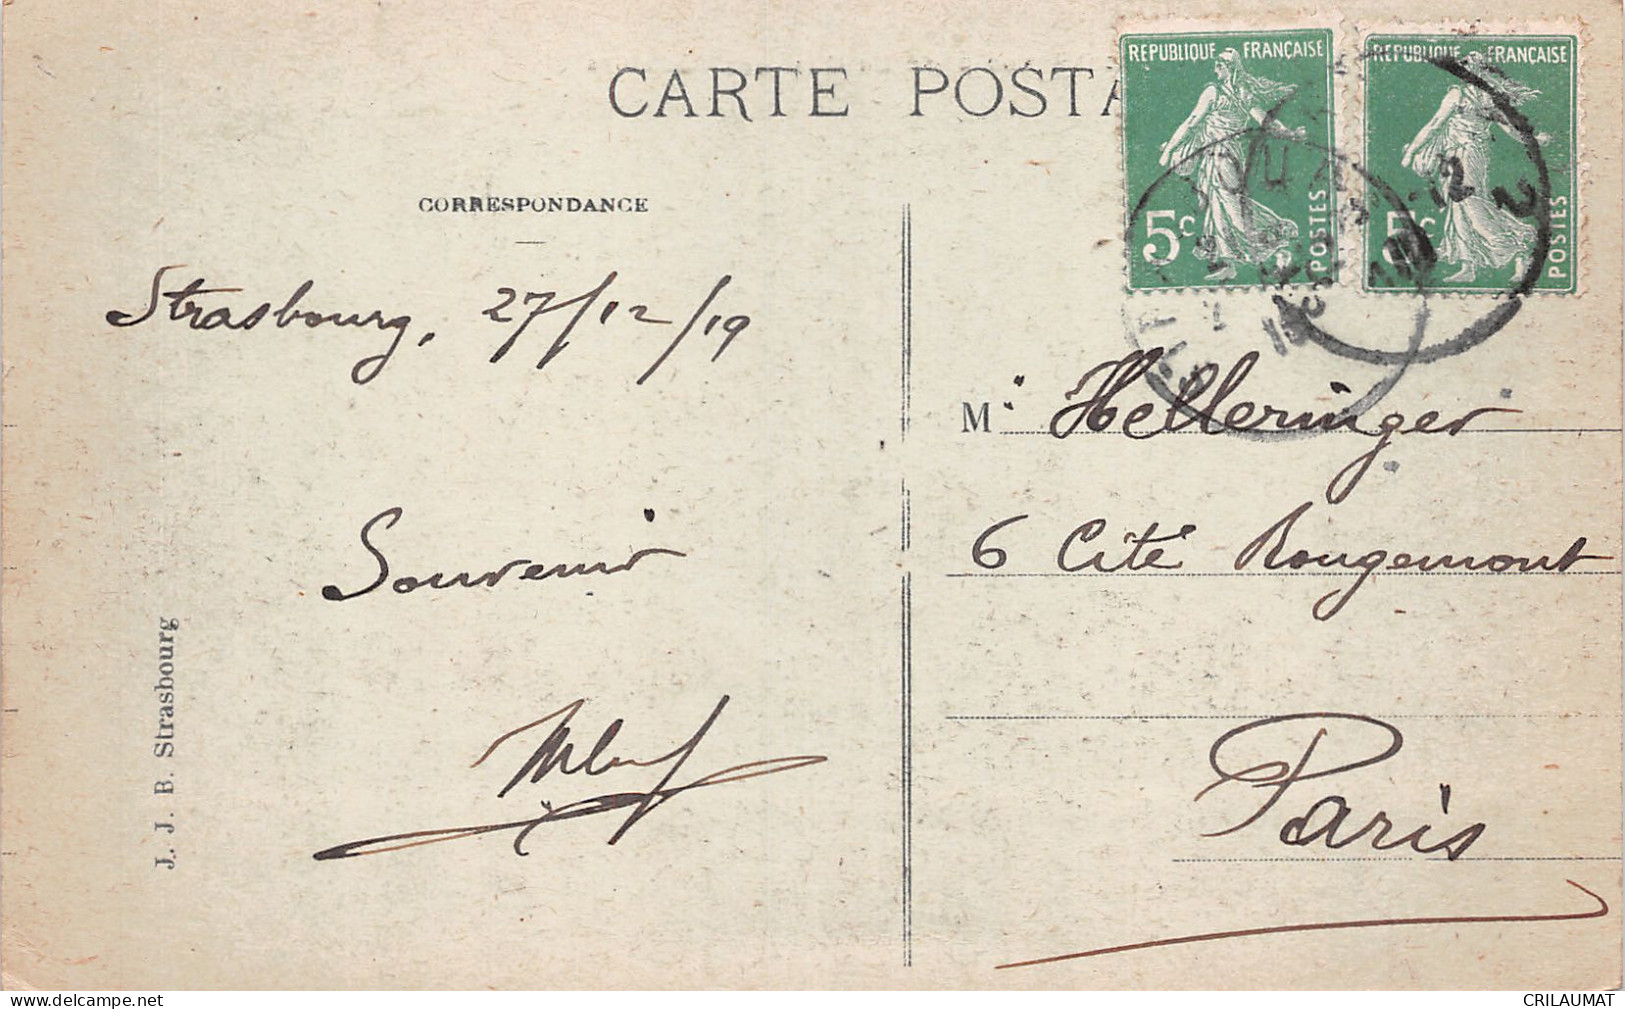 CARTE POSTA
RÉPUBLIQUE FRANÇAISE
5c
POSTES
RÉPUBLIQUE FRANÇAISE
5c
POSTES
CORRESPONDANCE
Strasbourg, 27/12/19
Souvenir
J. J. B. Strasbourg
M. Helleringer
6 Cité Rougemont
Paris
delcampe.net
CRILAUMAT